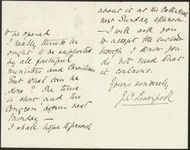 be opened
I really think he
ought to be supported
by all faithful
ministers and Christians
But what can be
done? The time
is short and the
Congress opens next
Monday —
I shall hope to preach
about it at the Cathedral
next Sunday afternoon.
I will ask you
to accept the enclosed
though I know you
do not need what
it contains.
Yours sincerely,
J. C. Liverpool